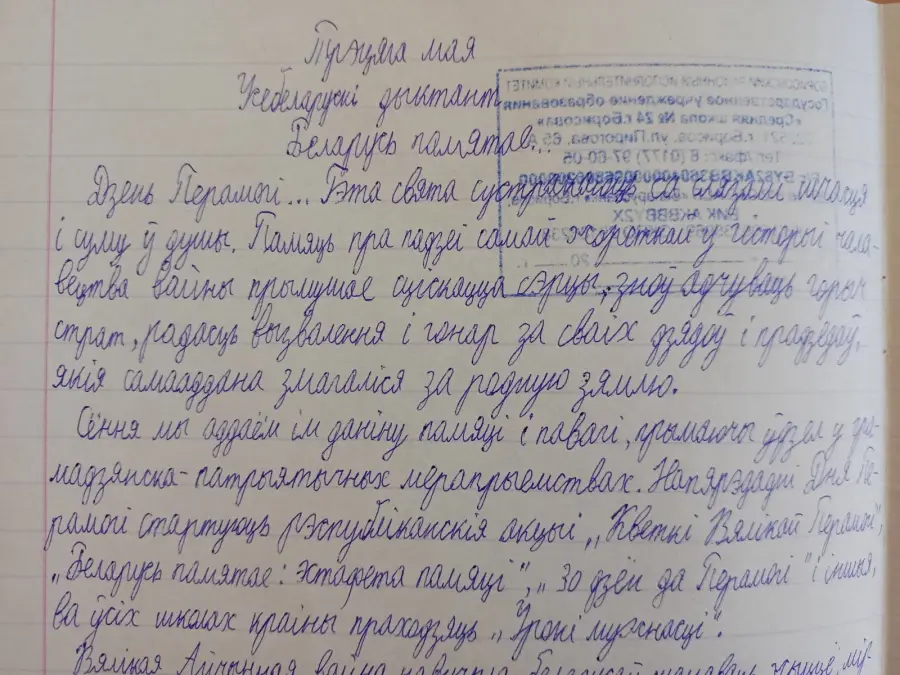 Трэцяга мая
Усебеларускі дыктант
Беларусь памятае...
Дзень Перамогі... Гэта свята сустракаюць са слязамі шчасця
і суму ў душы. Памяць пра падзеі самай жорсткай у гісторыі чала-
вецтва вайны прымушае сціскацца сэрцы, зноў адчуваць горыч
страт, радасць вызвалення і гонар за сваіх дзядоў і прадзедаў,
якія самааддана змагаліся за родную зямлю.
Сёння мы аддаём ім даніну памяці і павагі, прымаючы ўдзел у гра-
мадзянска-патрыятычных мерапрыемствах. Напярэдадні Дня Пе-
рамогі стартуюць рэспубліканскія акцыі „Кветкі Вялікай Перамогі",
„Беларусь памятае: эстафета памяці", „30 дзён да Перамогі" і іншыя,
ва ўсіх школах краіны праходзяць „Урокі мужнасці".
Вялікая Айчынная вайна навучыла беларусаў шанаваць жыццё, му-
Государственное учреждение образования
«Средняя школа № 24 г.Борисова»
г.Борисов, ул.Пирогова, 65
Тел/факс: 8 (0177) 97-60-05